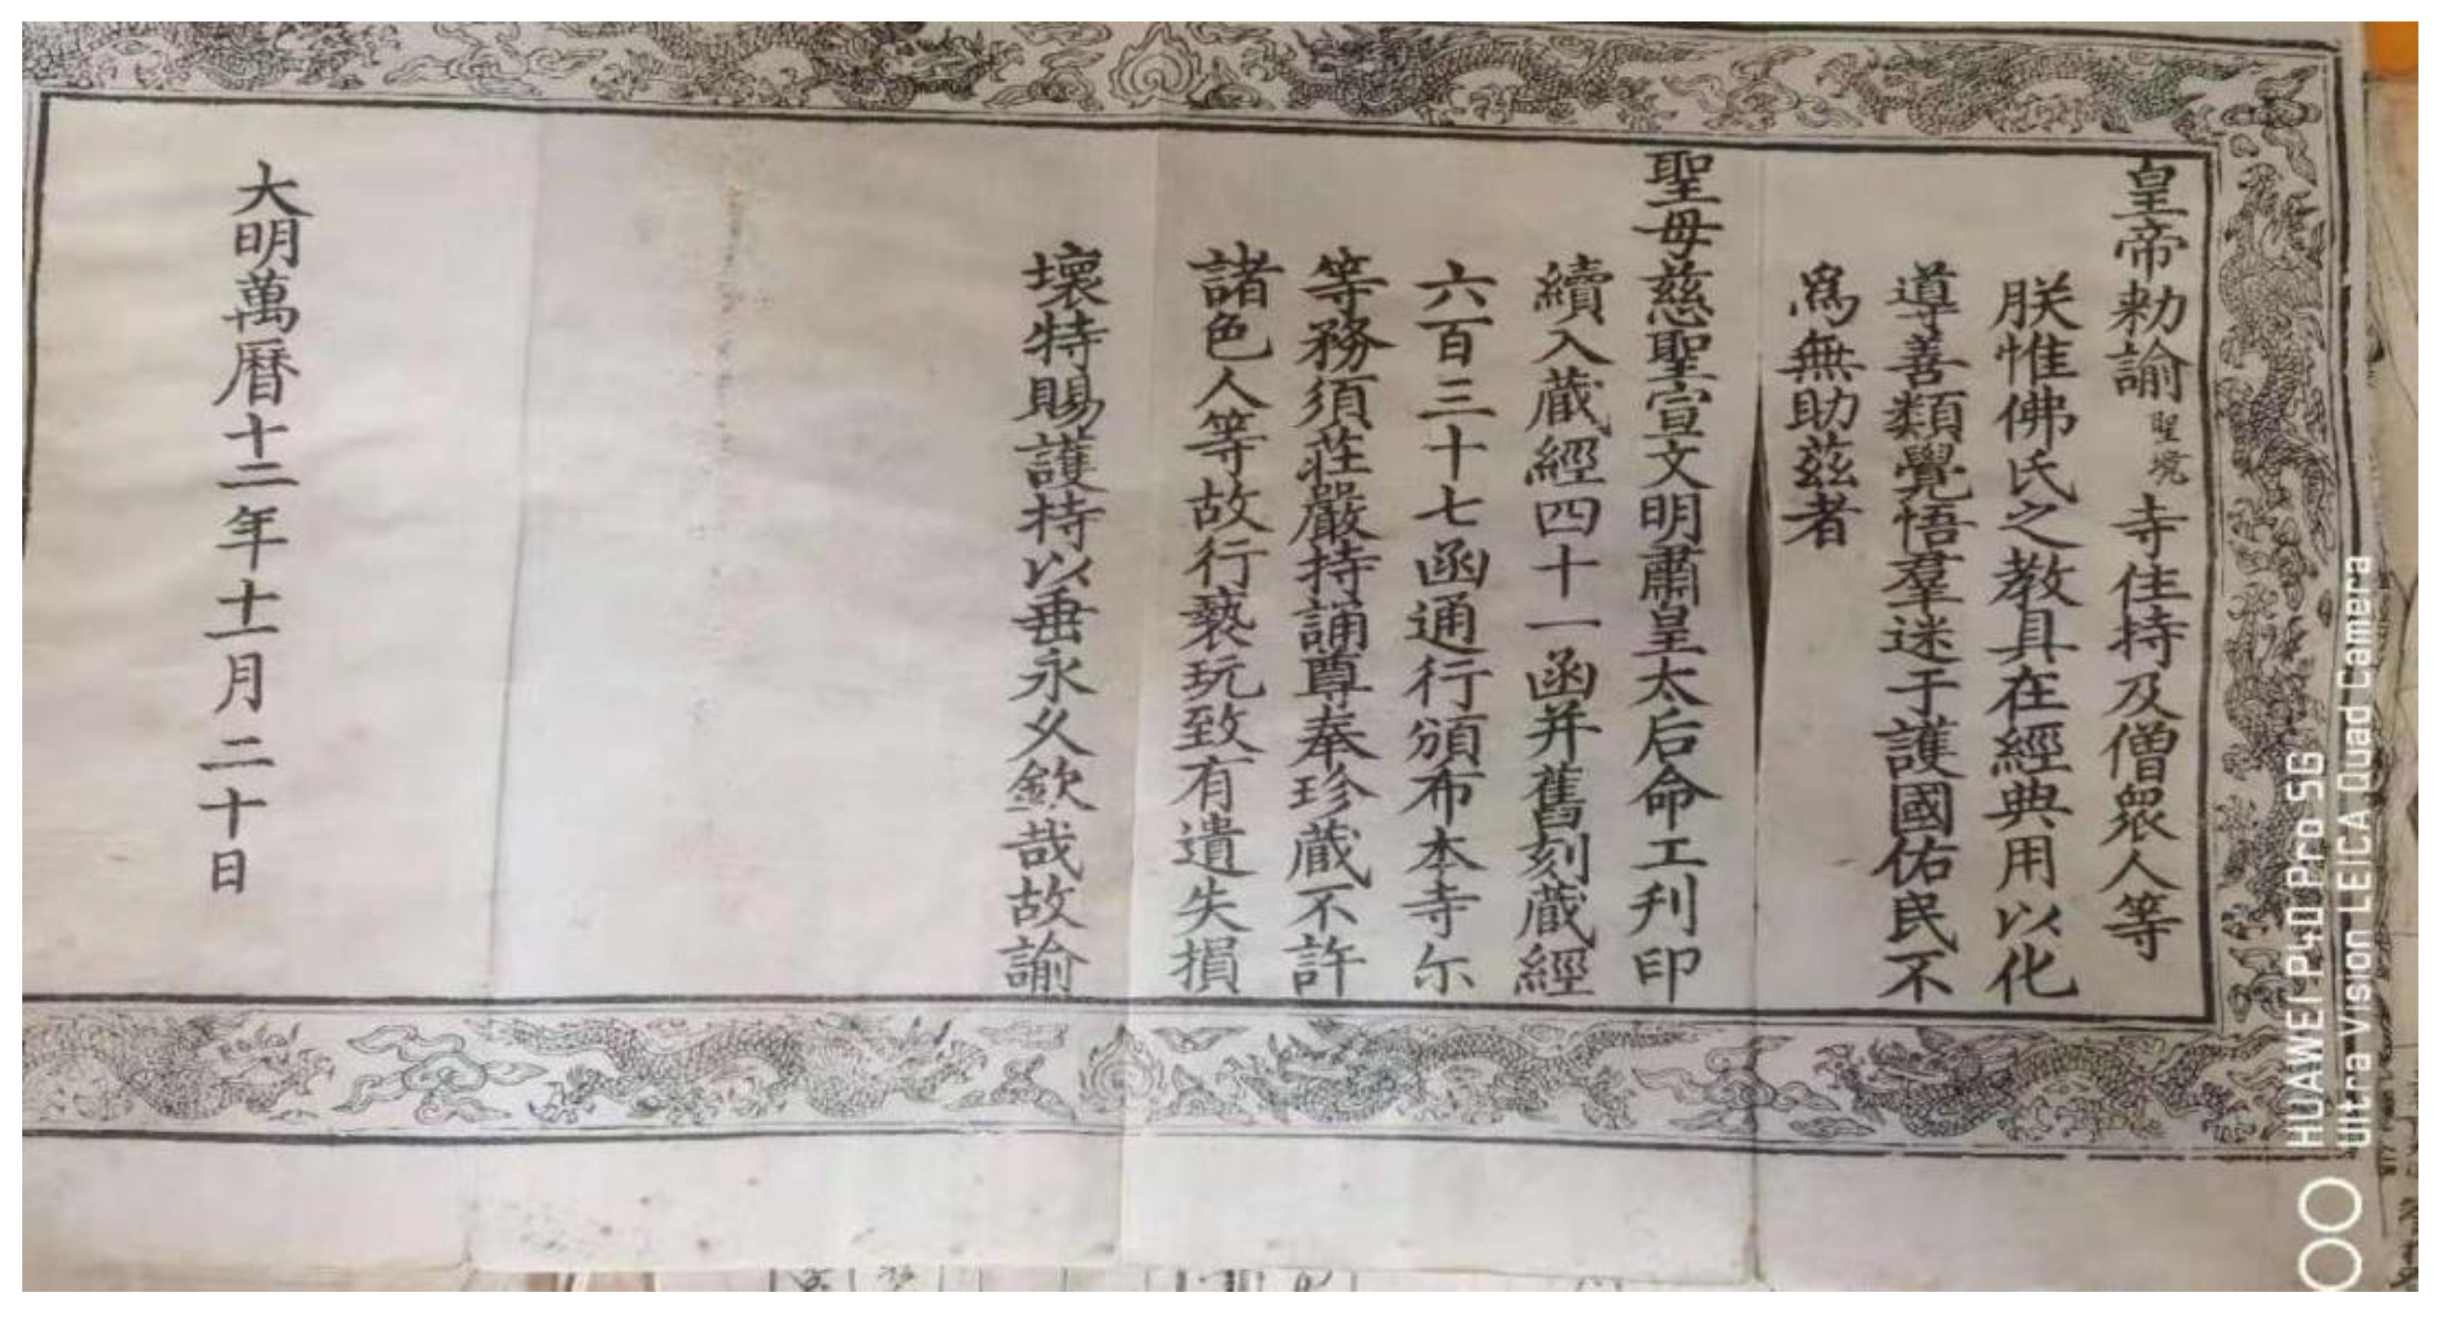 皇帝勑諭聖境寺住持及僧眾人等
朕惟佛氏之教具在經典用以化
導善類覺悟羣迷于護國佑民不
爲無助茲者
聖母慈聖宣文明肅皇太后命工刋印
續入藏經四十一函并舊刻藏經
六百三十七函通行頒布本寺尓
等務須莊嚴持誦尊奉珍藏不許
諸色人等故行褻玩致有遺失損
壞特賜護持以垂永久欽哉故諭
大明萬曆十二年十一月二十日
HUAWEI P40 Pro 5G
Ultra Vision LEICA Quad Camera